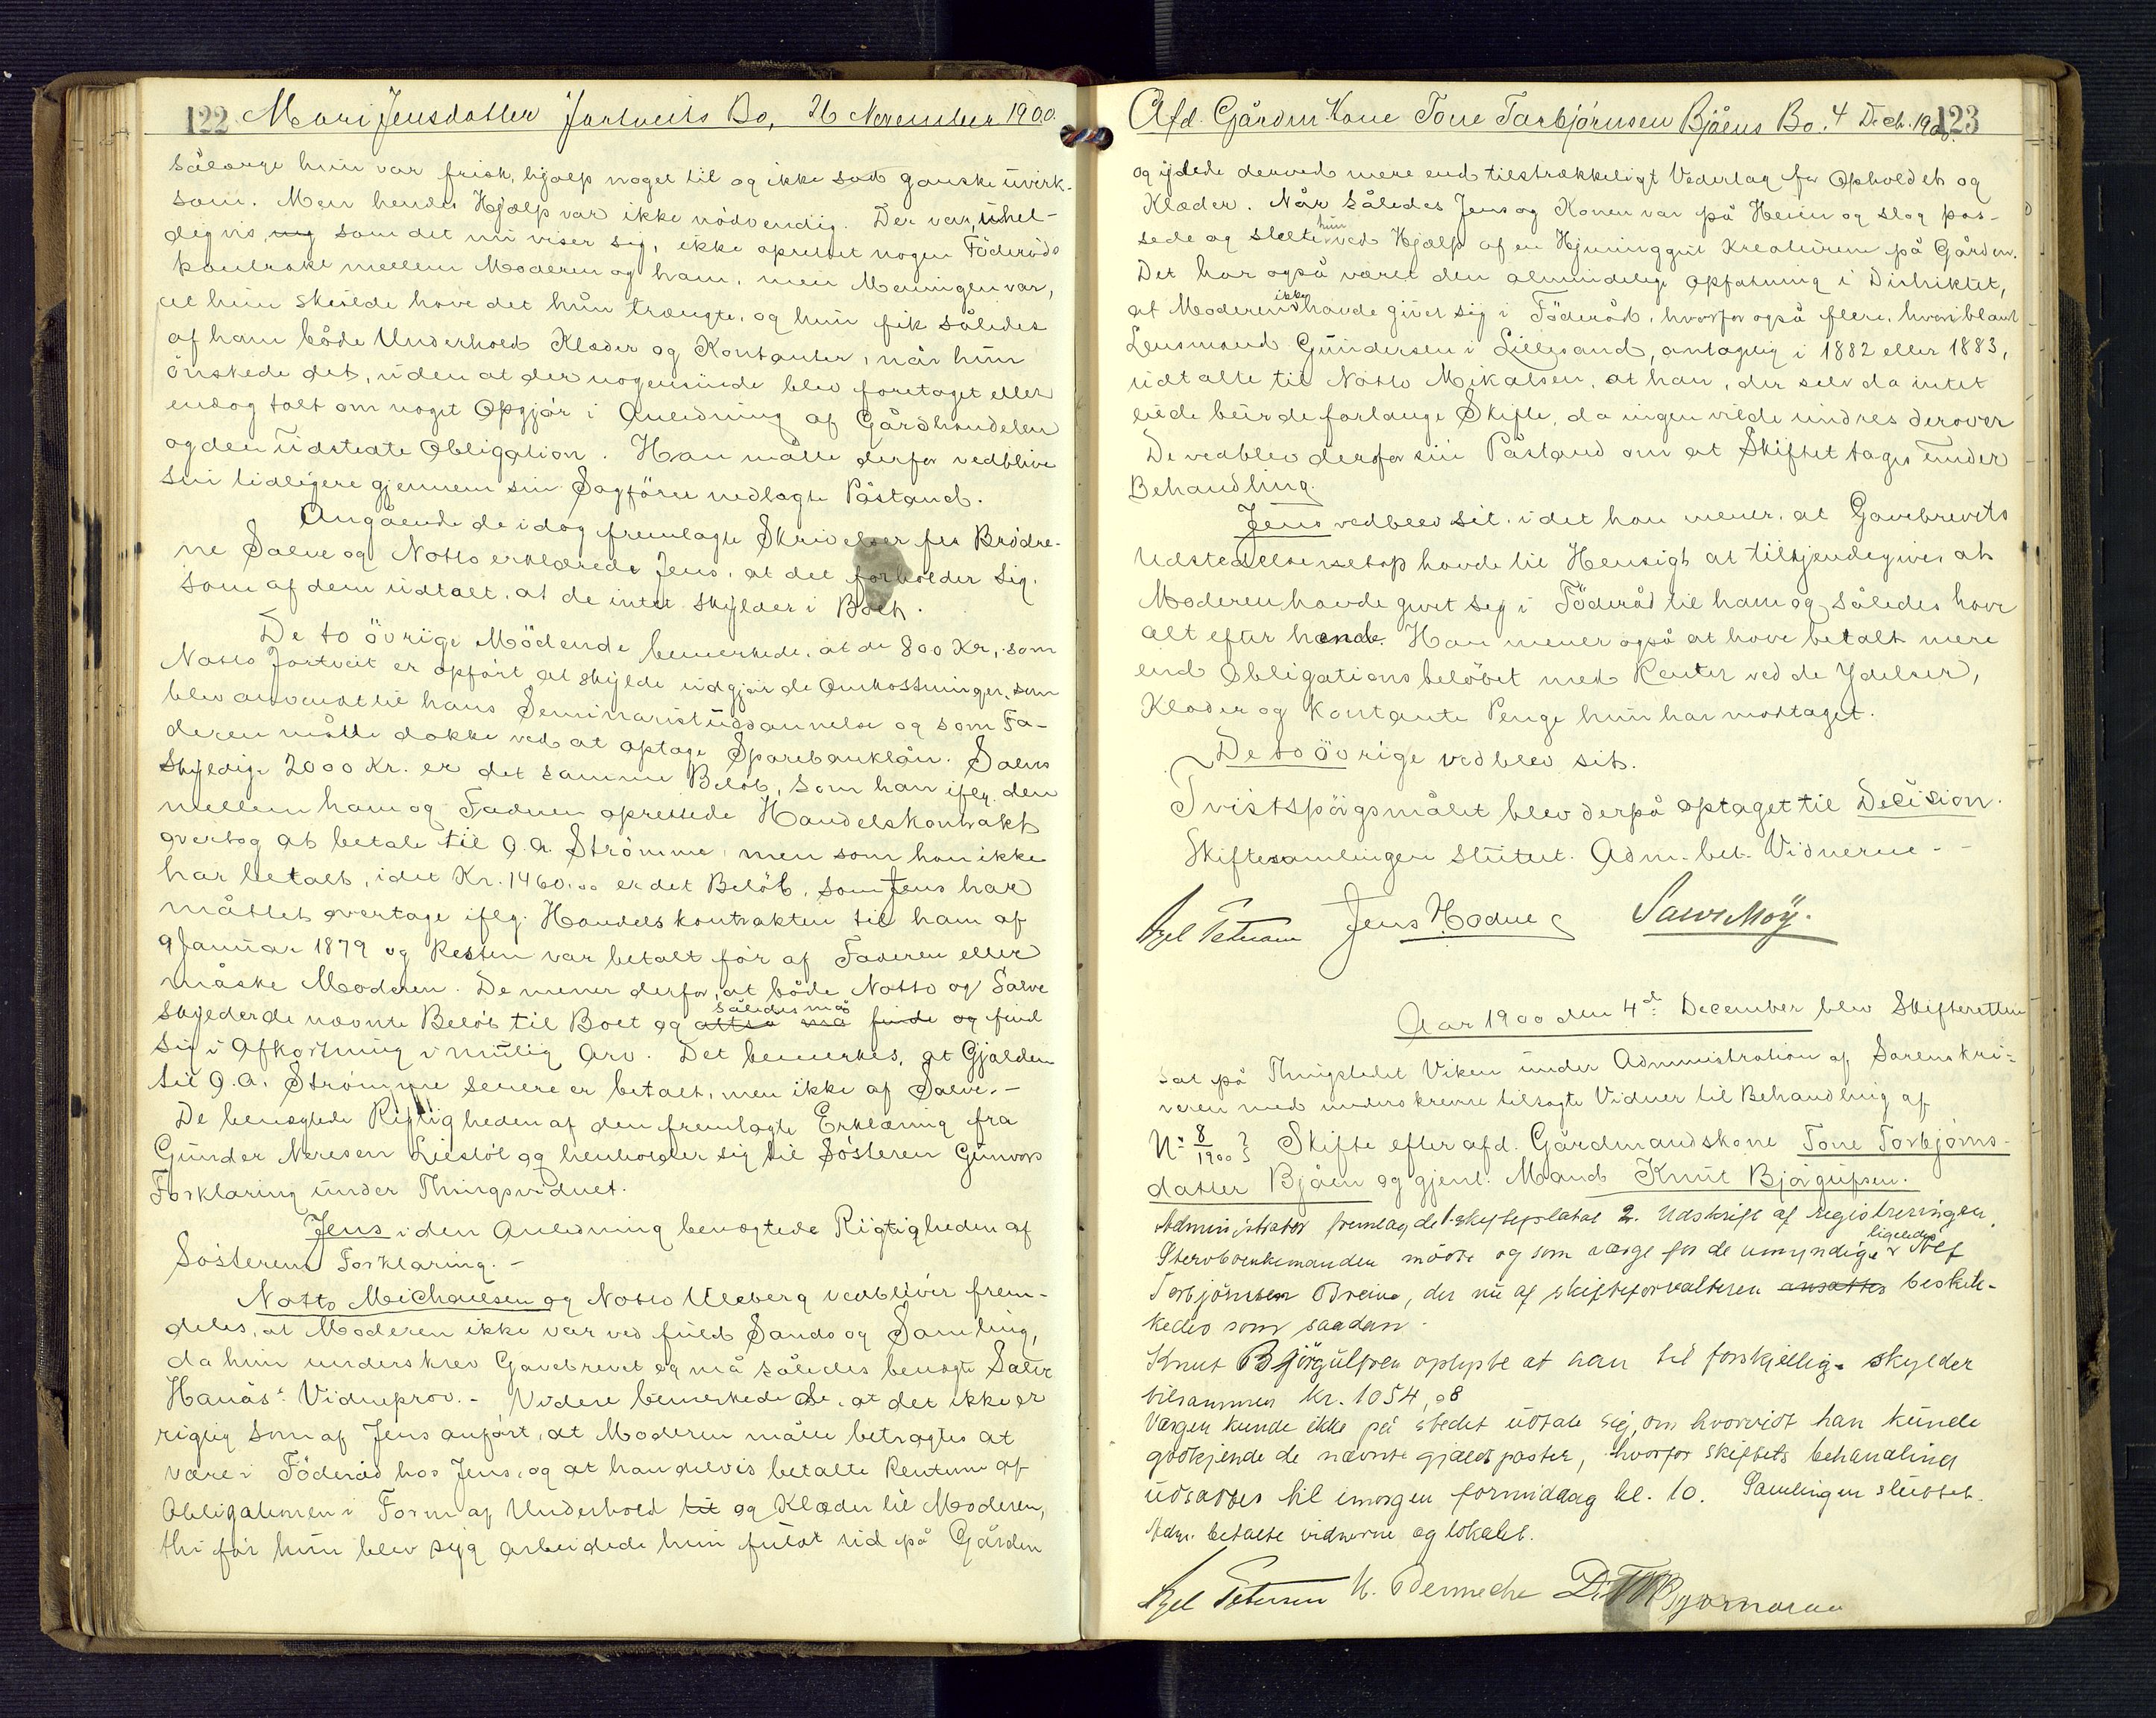 122 Mari Jensdatter Jortveits Bo, 26 November 1900.
sålænge hun var frisk, hjalp noget til og ikke sad ganske uvirk-
som. Men hendes Hjælp var ikke nödvendig. Der var, uhel-
digvis, som det nu viser sig, ikke oprettet nogen Föderåds
kontrakt mellem Moderen og ham, men Meningen var,
at hun skulde have det hun trængte, og hun fik således
af ham både Underhold Klæder og Kontanter, når hun
önskede det, uden at der nogensinde blev foretaget eller
endog talt om noget Opgjör i Anledning af Gårdhandelen
og den udstedte Obligation. Han måtte derfor vedblive
sin tidligere gjennem sin Sagförer nedlagte Påstand.
Angående de idag fremlagte Skrivelser fra Brödre-
ne Salve og Notto erklærede Jens, at det forholder sig,
som af dem udtalt, at de intet skylder i Boet.
De to övrige Mödende bemerkede, at de 800 Kr, som
Notto Jortveit er opfört at skylde udgjör de Omkostninger, som
blev anvendt til hans Seminaristuddannelse og som Fa-
deren måtte dække ved at optage Sparebanklån. Salves
skyldige 2000 Kr. er det samme Belöb, som han iflg. den
mellem ham og Faderen oprettede Handelskontrakt
overtog at betale til O. A. Strömme, men som han ikke
har betalt, idet Kr. 1460.00 er det Belöb, som Jens har
måttet overtage iflg. Handelskontrakten til ham af
9 Januar 1879 og Resten var betalt för af Faderen eller
måske Moderen. De mener derfor, at både Notto og Salve
skylder de nævnte Belöb til Boet og altså må finde og således må find
sig i Afkortning i mulig Arv. Det bemerkes, at Gjælden
til O. A. Strömme senere er betalt, men ikke af Salve. -
De benegtede Rigtigheden af den fremlagte Erklæring fra
Gunder Neresen Liestöl og henholder sig til Sösteren Gunvors
Forklaring under Thingsvidnet.
Jens i den Anledning benegtede Rigtigheden af
Sösterens Forklaring. -
Notto Michaelsen og Notto Uleberg vedbliver frem-
deles, at Moderen ikke var ved fuld Sands og Samling,
da hun underskrev Gavebrevet og må således benegte Salve
Hanås' Vidneprov. - Videre bemerkede de, at det ikke er
rigtig som af Jens anfört, at Moderen måtte betragtes at
være i Föderåd hos Jens, og at han delvis betalte Renterne af
Obligationen i Form af Underhold til og Klæder til Moderen,
thi för hun blev syg arbeidede hun fuldt ud på Gården
Afd. Gårdm Kone Tone Torbjörnsen Bjåens Bo. 4 Decb. 1900. 123
og ydede derved mere end tilstrækkeligt Vederlag for Opholdet og
Klæder. Når således Jens og Konen var på Heien og slog pas-
sede og stelte hun ved Hjælp af en Kreaturene på Gården.
Det har også været den almindelige Opfatning i Distriktet,
at Moderen ikke havde givet sig i Föderåd, hvorfor også flere, hvoriblandt
Lensmand Gundersen i Lillesand, antagelig i 1882 eller 1883,
udtalte til Notto Mikalsen, at han, der selv da intet
eiede burde forlange Skifte, da ingen vilde undres derover
De vedblev derfor sin Påstand om at Skiftet tages under
Behandling.
Jens vedblev sit, idet han mener, at Gavebrevets
Udstedelse netop havde til Hensigt at tilkjendegive, at
Moderen havde givet sig i Föderåd til ham og således have
alt efter hende. Han mener også at have betalt mere
end Obligationsbelöbet med Renter ved de Ydelser,
Klæder og Kontante Penge hun har modtaget.
De to övrige vedblev sit.
Tvistspörgsmålet blev derpå optaget til Decision.
Skiftesamlingen sluttet. Adm. bet. Vidnerne. -
Axel Petersen Jens Hodne Salve Möy.
Aar 1900 den 4de December blev Skifteretten
sat på Thingstedet Viken under Administration af Sorenskri-
veren med underskrevne tilsagte Vidner til Behandling af
No 8/1900 Skifte efter afd. Gårdmandskone Tone Torbjörns-
datter Bjåen og gjenl. Mand Knut Björgulfsen.
Administrator fremlagde 1. skifteplakat 2. Udskrift af registreringen.
Stervboenkemanden mödte og som værge for de umyndige ligeledes Olef
Torbjörnsen Breive, der nu af skifteforvalteren ansattes beskik-
kedes som saadan.
Knut Björgulfsen oplyste at han til forskjellige skylder
tilsammen Kr. 1054,08
Værgen kunde ikke på stedet udtale sig, om hvorvidt han kunde
godkjende de nævnte gjældsposter, hvorfor skiftets behandling
udsattes til imorgen formiddag kl. 10. Samlingen sluttet.
Adm. betalte vidnerne og lokalet.
Axel Petersen D. T. Bjørnaraa